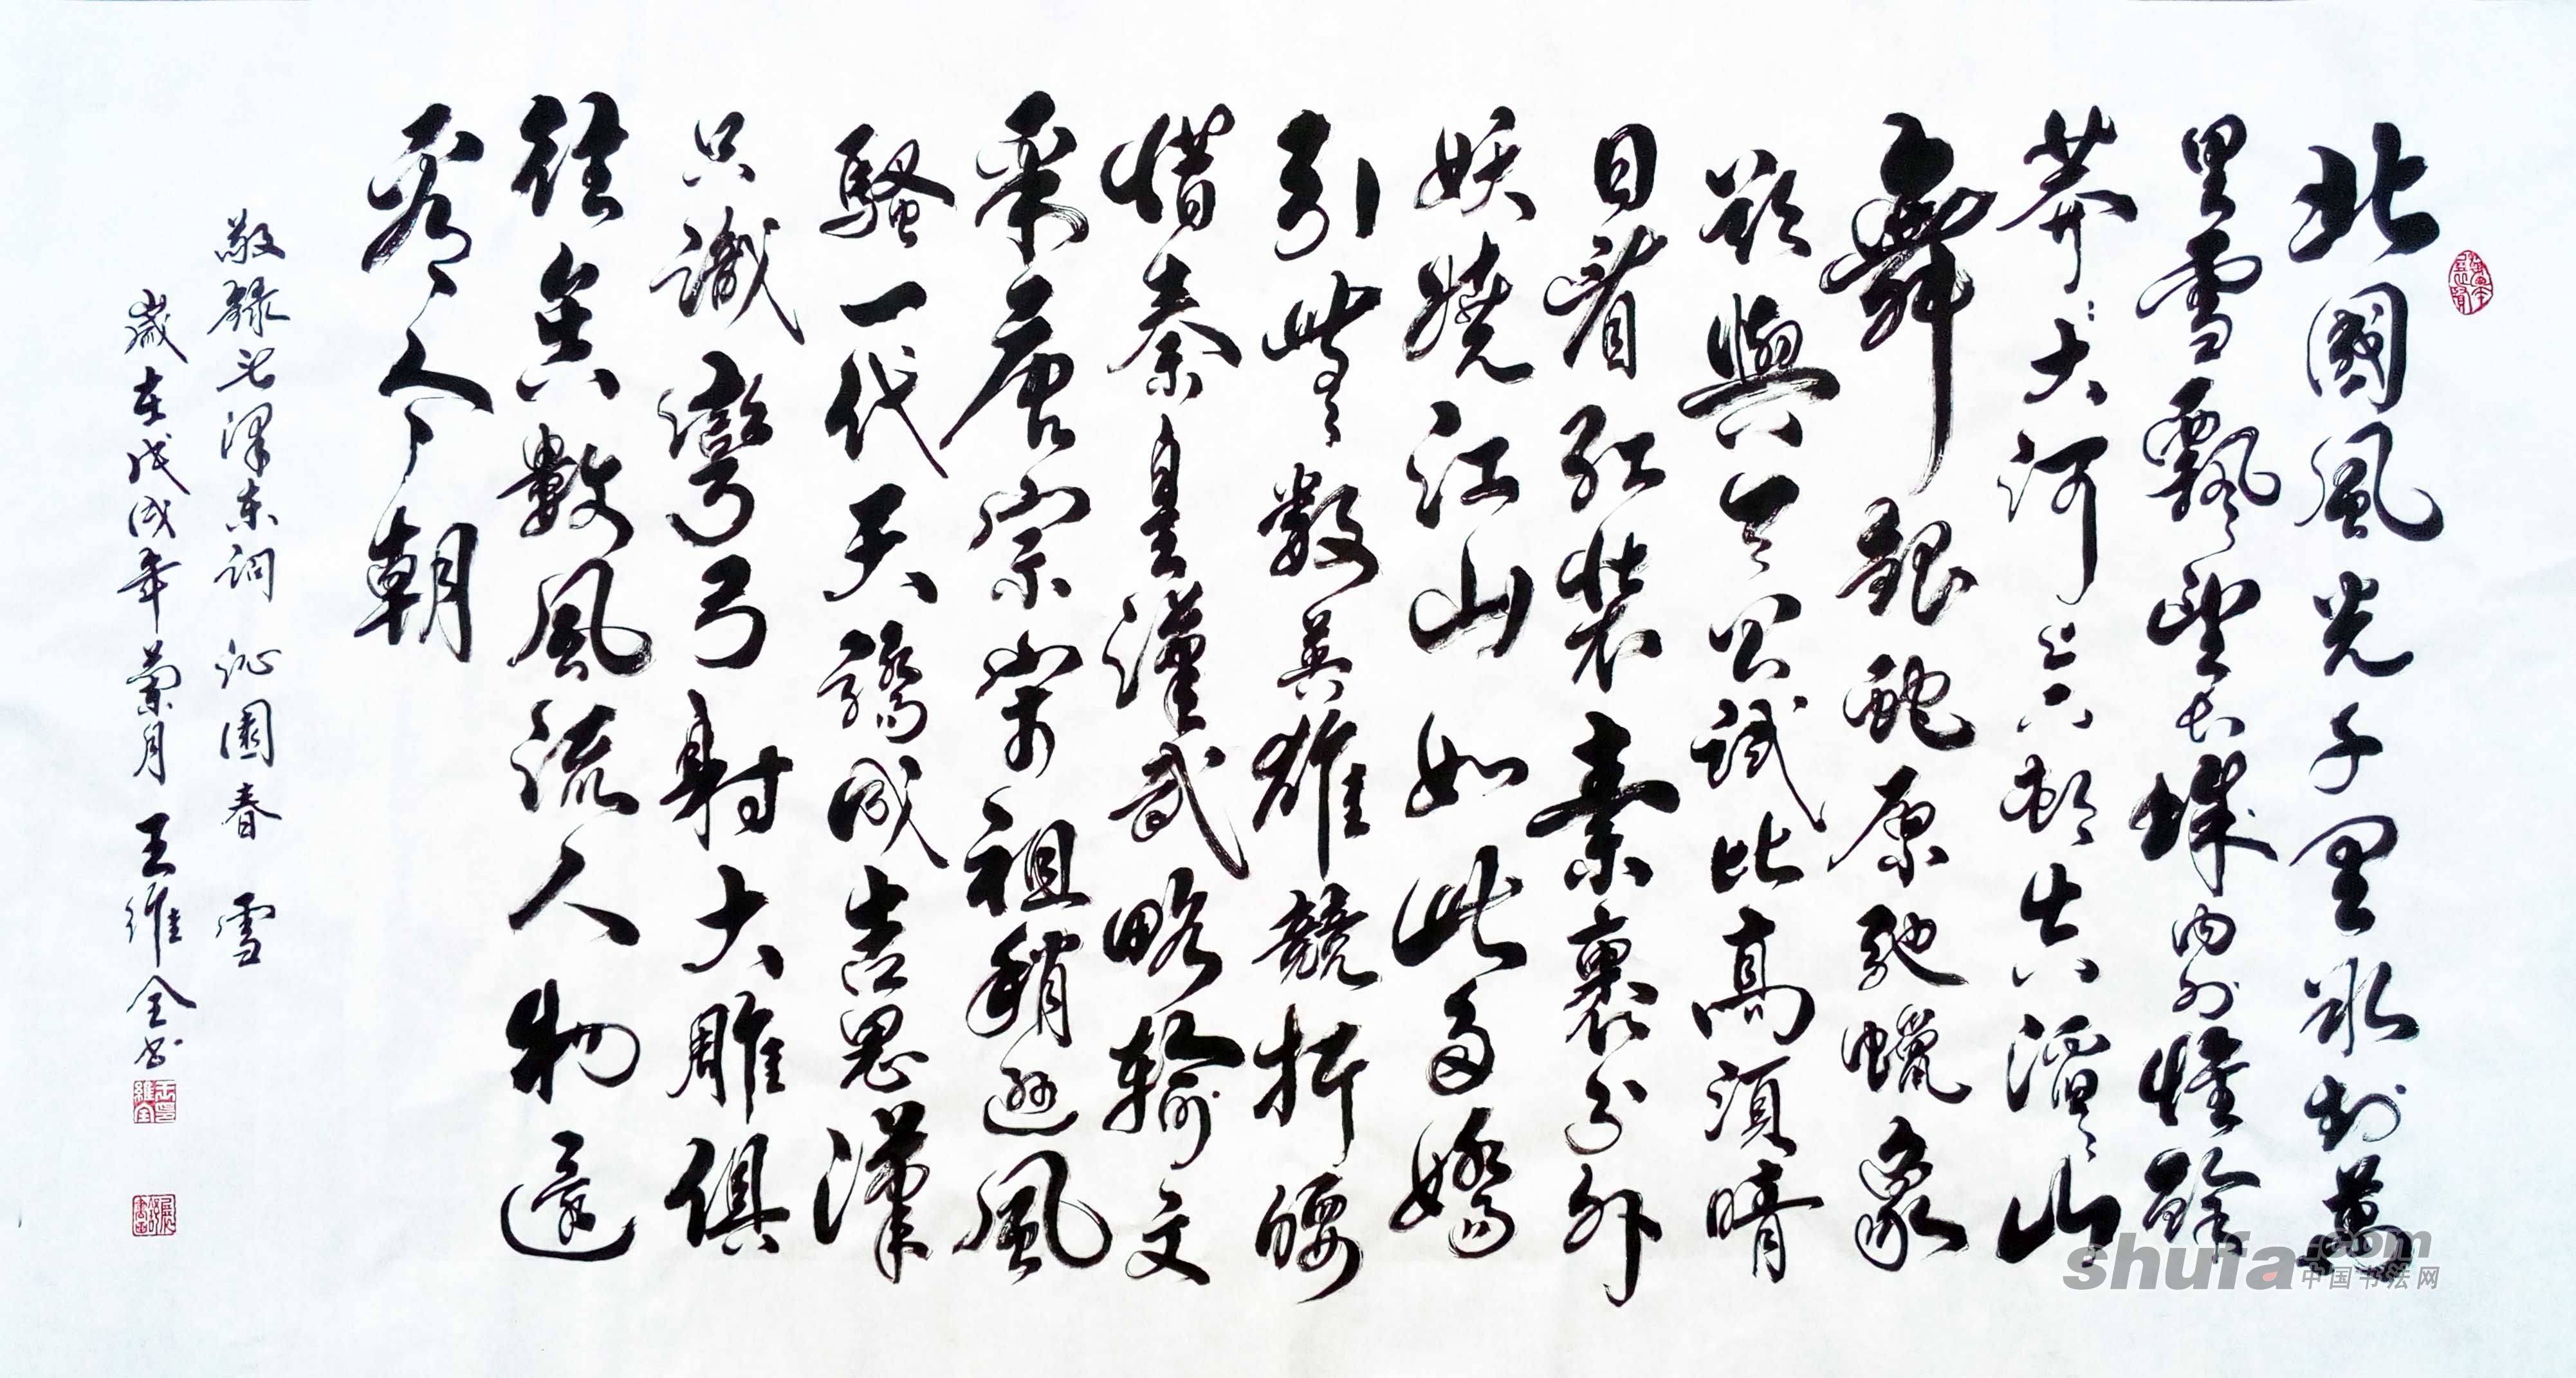 北國風光千里冰封萬
里雪飄望長城內外惟餘
莽々大河上下頓失滔々山
舞銀蛇原馳蠟象
欲與天公試比高須晴
日看紅裝素裹分外
妖嬈江山如此多嬌
引無數英雄競折腰
惜秦皇漢武略輸文
采唐宗宋祖稍遜風
騷一代天驕成吉思漢
只識彎弓射大雕俱
往矣數風流人物還
看今朝
敬録毛澤東詞 沁園春 雪
歲在戊戌年菊月 王維全书
shufa.com
中国书法网